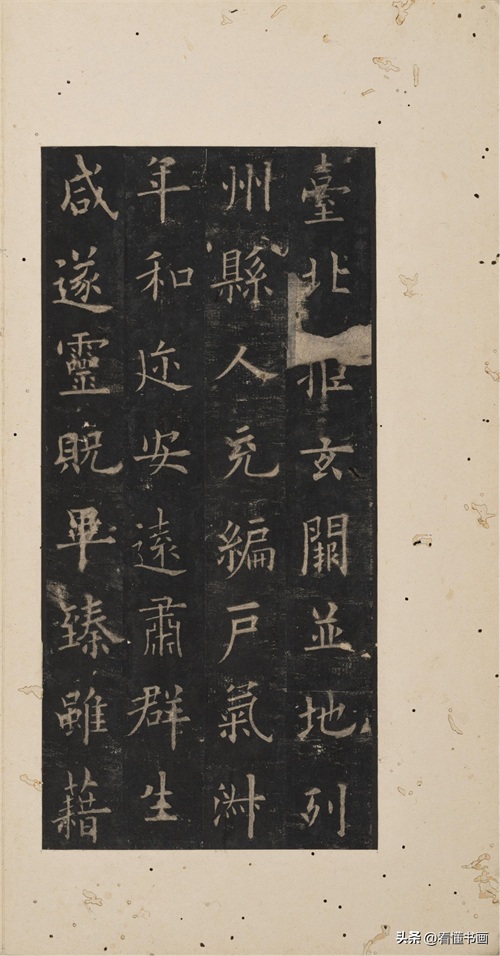 臺北玄闕並地列
州縣人充編戶氣淑
年和迩安遠肅群生
咸遂靈貺畢臻雖藉
头条 @看懂书画